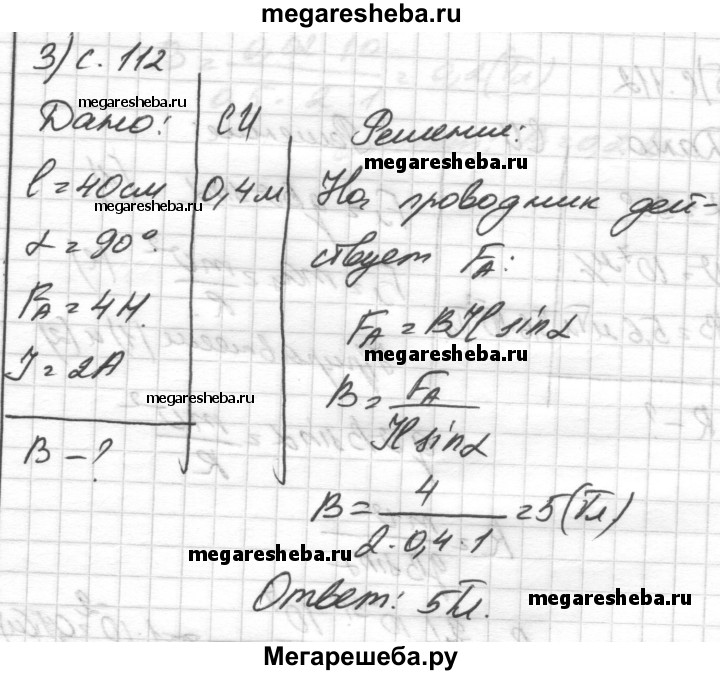 megaresheba.ru
3) с. 112
megaresheba.ru
Дано:
СИ
Решение:
megaresheba.ru
l = 40 см
0,4 м
На проводник дей-
megaresheba.ru
α = 90°.
ствует F_A:
F_A = 4 Н.
F_A = BIl sinα
megaresheba.ru
I = 2А
megaresheba.ru
B = F_A / Il sinα
B - ?
B = 4 / 2·0,4·1 = 5 (Тл)
megaresheba.ru
Ответ: 5 Тл.
megaresheba.ru
Мегарешеба.ру